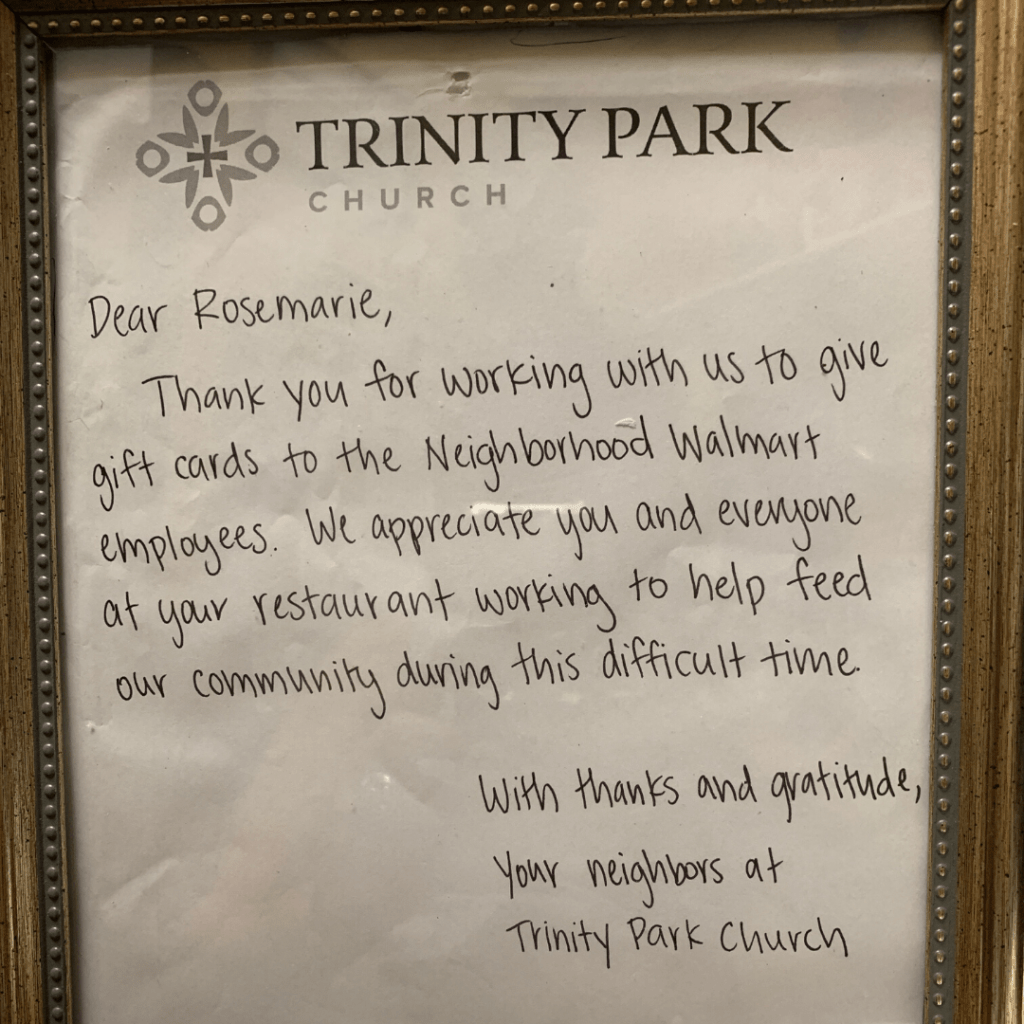 TRINITY PARK
CHURCH
Dear Rosemarie,
Thank you for working with us to give
gift cards to the Neighborhood Walmart
employees. We appreciate you and everyone
at your restaurant working to help feed
our community during this difficult time.
With thanks and gratitude,
Your neighbors at
Trinity Park Church